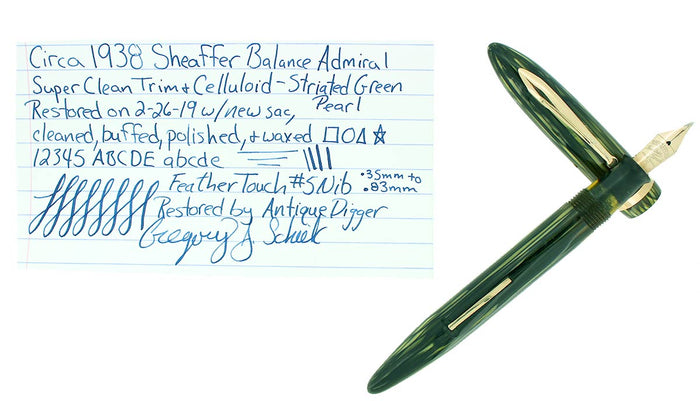 Circa 1938 Sheaffer Balance Admiral
Super Clean Trim + Celluloid - Striated Green
Pearl
Restored on 2-26-19 w/new sac,
cleaned, buffed, polished, + waxed
12345 ABCDE abcde
Feather Touch #5 Nib .35mm to
.83mm
Restored by Antique Digger
Gregory J.